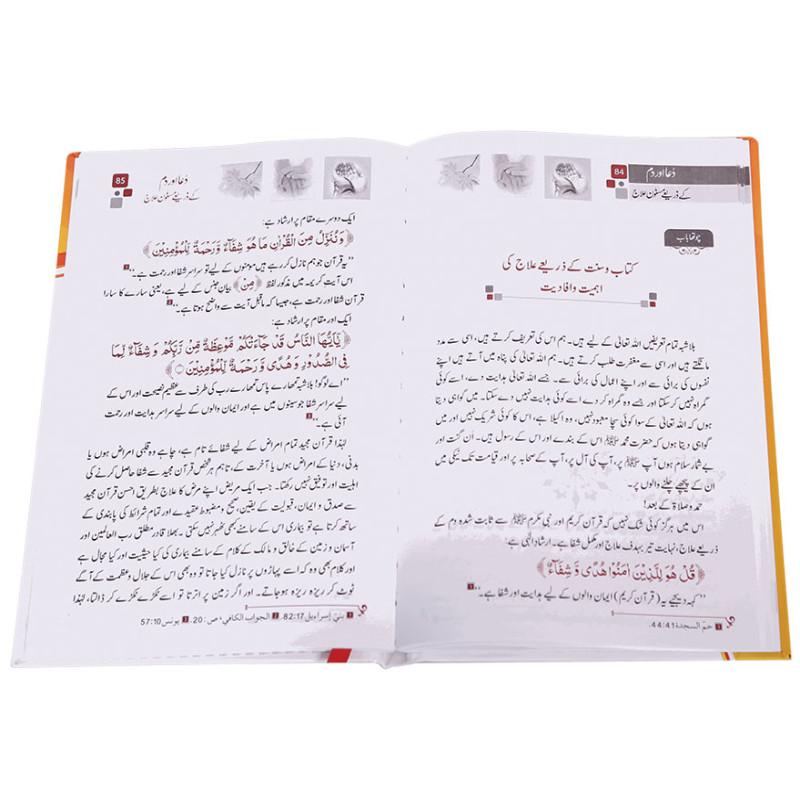 84
دُعا اور دم
کے ذریعے مسنون علاج
چوتھا باب
کتاب و سنت کے ذریعے علاج کی
اہمیت و افادیت
بلاشبہ تمام تعریفیں اللہ تعالیٰ کے لیے ہیں۔ ہم اس کی تعریف کرتے ہیں، اسی سے مدد
مانگتے ہیں اور اسی سے مغفرت طلب کرتے ہیں۔ ہم اللہ تعالیٰ کی پناہ میں آتے ہیں اپنے
نفسوں کی برائی سے اور اپنے اعمال کی برائی سے۔ جسے اللہ تعالیٰ ہدایت دے، اسے کوئی
گمراہ نہیں کرسکتا اور جسے وہ گمراہ کر دے اسے کوئی ہدایت نہیں دے سکتا۔ میں گواہی دیتا
ہوں کہ اللہ تعالیٰ کے سوا کوئی سچا معبود نہیں، وہ اکیلا ہے، اس کا کوئی شریک نہیں اور میں
گواہی دیتا ہوں کہ حضرت محمد ﷺ اس کے بندے اور اس کے رسول ہیں۔ اَن گنت اور
بے شمار سلام ہوں آپ ﷺ پر، آپ کی آل پر، آپ کے صحابہ پر اور قیامت تک نیکی میں
ان کے پیچھے چلنے والوں پر۔
حمد و صلاۃ کے بعد!
اس میں ہرگز کوئی شک نہیں کہ قرآن کریم اور نبی مکرم ﷺ سے ثابت شدہ دم کے
ذریعے علاج، نہایت تیر بہدف علاج اور مکمل شفا ہے۔ ارشاد الٰہی ہے:
﴿قُلْ هُوَ لِلَّذِينَ اٰمَنُوْا هُدًى وَّشِفَآءٌ﴾
”کہہ دیجیے یہ (قرآن کریم) ایمان والوں کے لیے ہدایت اور شفا ہے۔“ 1
1 حٰمٓ السجدۃ 44:41.
85
دُعا اور دم
کے ذریعے مسنون علاج
ایک دوسرے مقام پر ارشاد ہے:
﴿وَنُنَزِّلُ مِنَ الْقُرْاٰنِ مَا هُوَ شِفَآءٌ وَّرَحْمَةٌ لِّلْمُؤْمِنِيْنَ﴾
”یہ قرآن جو ہم نازل کر رہے ہیں مومنوں کے لیے تو سراسر شفا اور رحمت ہے۔“ 1
اس آیت کریمہ میں مذکور لفظ ﴿مِنْ﴾ بیانِ جنس کے لیے ہے، یعنی سارے کا سارا
قرآن شفا اور رحمت ہے، جیسا کہ ماقبل آیت سے واضح ہوتا ہے۔ 2
ایک اور مقام پر ارشاد ہے:
﴿يٰٓاَيُّهَا النَّاسُ قَدْ جَآءَتْكُمْ مَّوْعِظَةٌ مِّنْ رَّبِّكُمْ وَشِفَآءٌ لِّمَا
فِى الصُّدُوْرِ وَهُدًى وَّرَحْمَةٌ لِّلْمُؤْمِنِيْنَ۝﴾
”اے لوگو! بلاشبہ تمھارے پاس تمھارے رب کی طرف سے عظیم نصیحت اور اس کے
لیے سراسر شفا جو سینوں میں ہے اور ایمان والوں کے لیے سراسر ہدایت اور رحمت
آئی ہے۔“ 3
لہٰذا قرآن مجید تمام امراض کے لیے شفائے تام ہے، چاہے وہ قلبی امراض ہوں یا
بدنی، دنیا کے امراض ہوں یا آخرت کے۔ تاہم ہر شخص قرآن مجید سے شفا حاصل کرنے کی
اہلیت اور توفیق نہیں رکھتا۔ جب ایک مریض اپنے مرض کا علاج بطریق احسن قرآن مجید
سے صدق و ایمان، قبولیت کے یقین، صحیح و مضبوط عقیدے اور تمام شرائط کی پابندی کے
ساتھ کرتا ہے تو بیماری اس کے سامنے کبھی ٹھہر نہیں سکتی۔ بھلا قادر مطلق رب العالمین اور
آسمان و زمین کے خالق و مالک کے کلام کے سامنے بیماری کی کیا حیثیت اور کیا مجال ہے
اور کلام بھی وہ کہ اسے پہاڑوں پر نازل کیا جاتا تو وہ بھی اس کے جلال و عظمت کے آگے
ٹوٹ کر ریزہ ریزہ ہوجاتے۔ اور اگر زمین پر اترتا تو اسے ٹکڑے ٹکڑے کر ڈالتا، لہٰذا
1 بنیٓ إسرآءیل 82:17. 2 الجواب الکافي، ص:20. 3 یونس 57:10